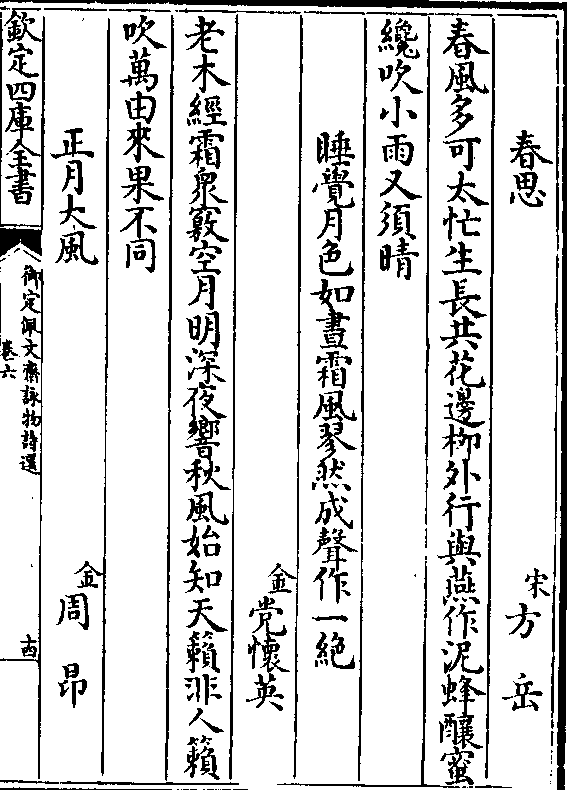 春思　宋方岳
春風多可太忙生長共花邊柳外行與燕作泥蜂釀蜜
纔吹小雨又須晴
睡覺月色如晝霜風翏然成聲作一絶
金党懷英
老木經霜衆竅空月明深夜響秋風始知天籟非人籟
吹萬由來果不同
正月大風　金周昂
欽定四庫全書
御定佩文齋詠物詩選
卷六
十四